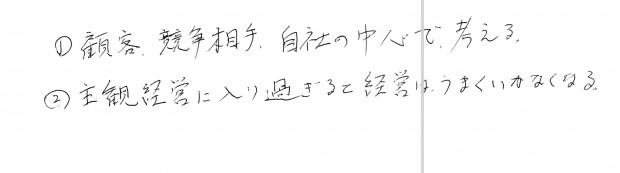 ① 顧客、競争相手、自社の中心で、考える。
② 主観経営に入り過ぎると経営は、うまくいかなくなる。